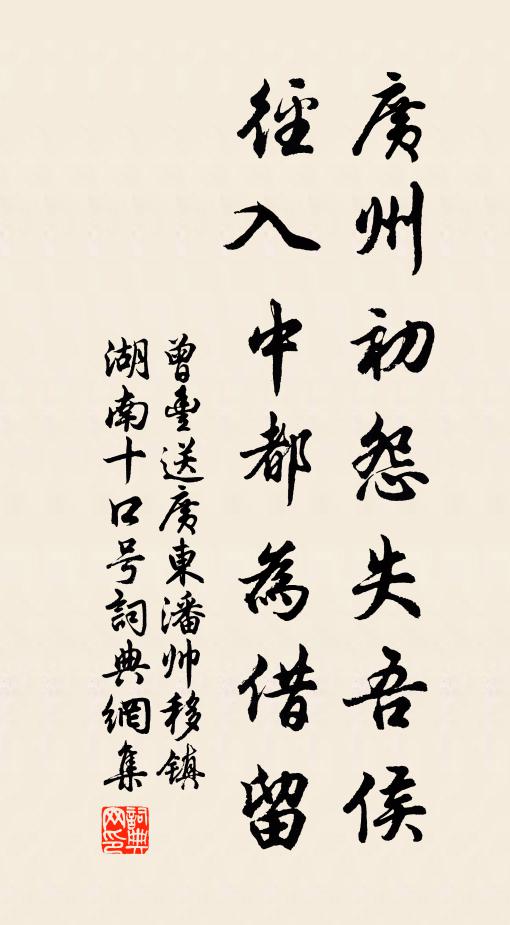 廣州初怨失吾侯
徑入中都為借留
曾豊送廣東潘帅移鎮
湖南十口号詞典網集
詞典网印